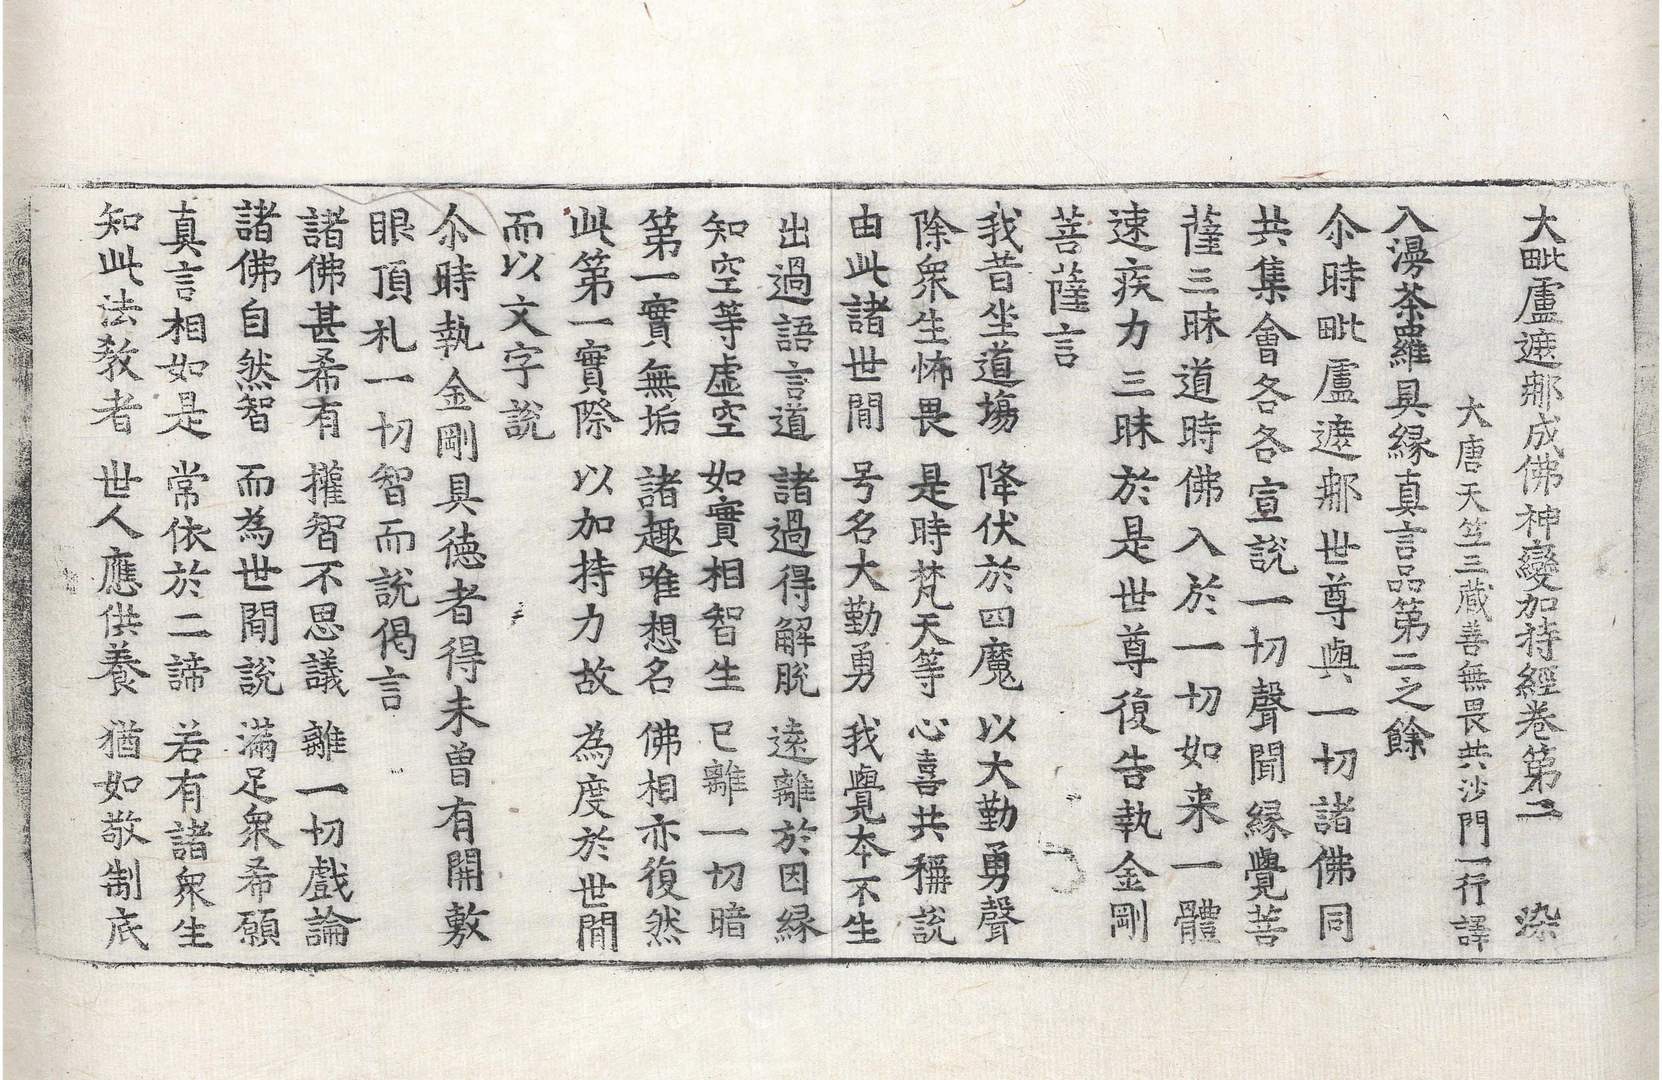 大毗盧遮那成佛神變加持經卷第二 染
大唐天竺三藏善無畏共沙門一行譯
入漫荼羅具緣真言品第二之餘
尒時毗盧遮那世尊與一切諸佛同
共集會各各宣說一切聲聞緣覺菩
薩三昧道時佛入於一切如来一體
速疾力三昧於是世尊復告執金剛
菩薩言
我昔坐道場 降伏於四魔 以大勤勇聲
除衆生怖畏 是時梵天等 心喜共稱說
由此諸世間 号名大勤勇 我覺本不生
出過語言道 諸過得解脫 遠離於因緣
知空等虛空 如實相智生 已離一切暗
第一實無垢 諸趣唯想名 佛相亦復然
此第一實際 以加持力故 為度於世間
而以文字說
尒時執金剛具德者得未曾有開敷
眼頂礼一切智而說偈言
諸佛甚希有 權智不思議 離一切戲論
諸佛自然智 而為世間說 滿足衆希願
真言相如是 常依於二諦 若有諸衆生
知此法教者 世人應供養 猶如敬制底